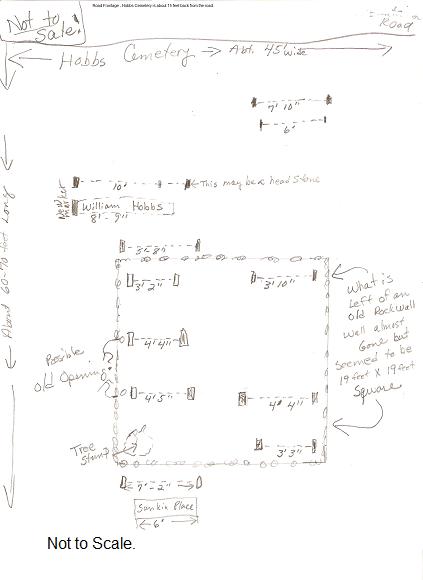 Road Frontage - Hobbs Cemetery is about 15 feet back from the road
Not to
Scale.
Road
Hobbs Cemetery → Abt. 45' wide
7' 10"
6'
10'
This may be a head stone
New marker
William Hobbs
8' - 9"
About 60-70 feet Long
3' 8"
3' 2"
3' 10"
What is
Left of an
old Rockwall
Wall almost
Gone but
seemed to be
19 foot X 19 foot
Square
4' 4"
Possible
old Opening
4' 5"
4' 4"
Tree
Stump
3' 3"
7' - 2"
Sunkin Place
6'
Not to Scale.